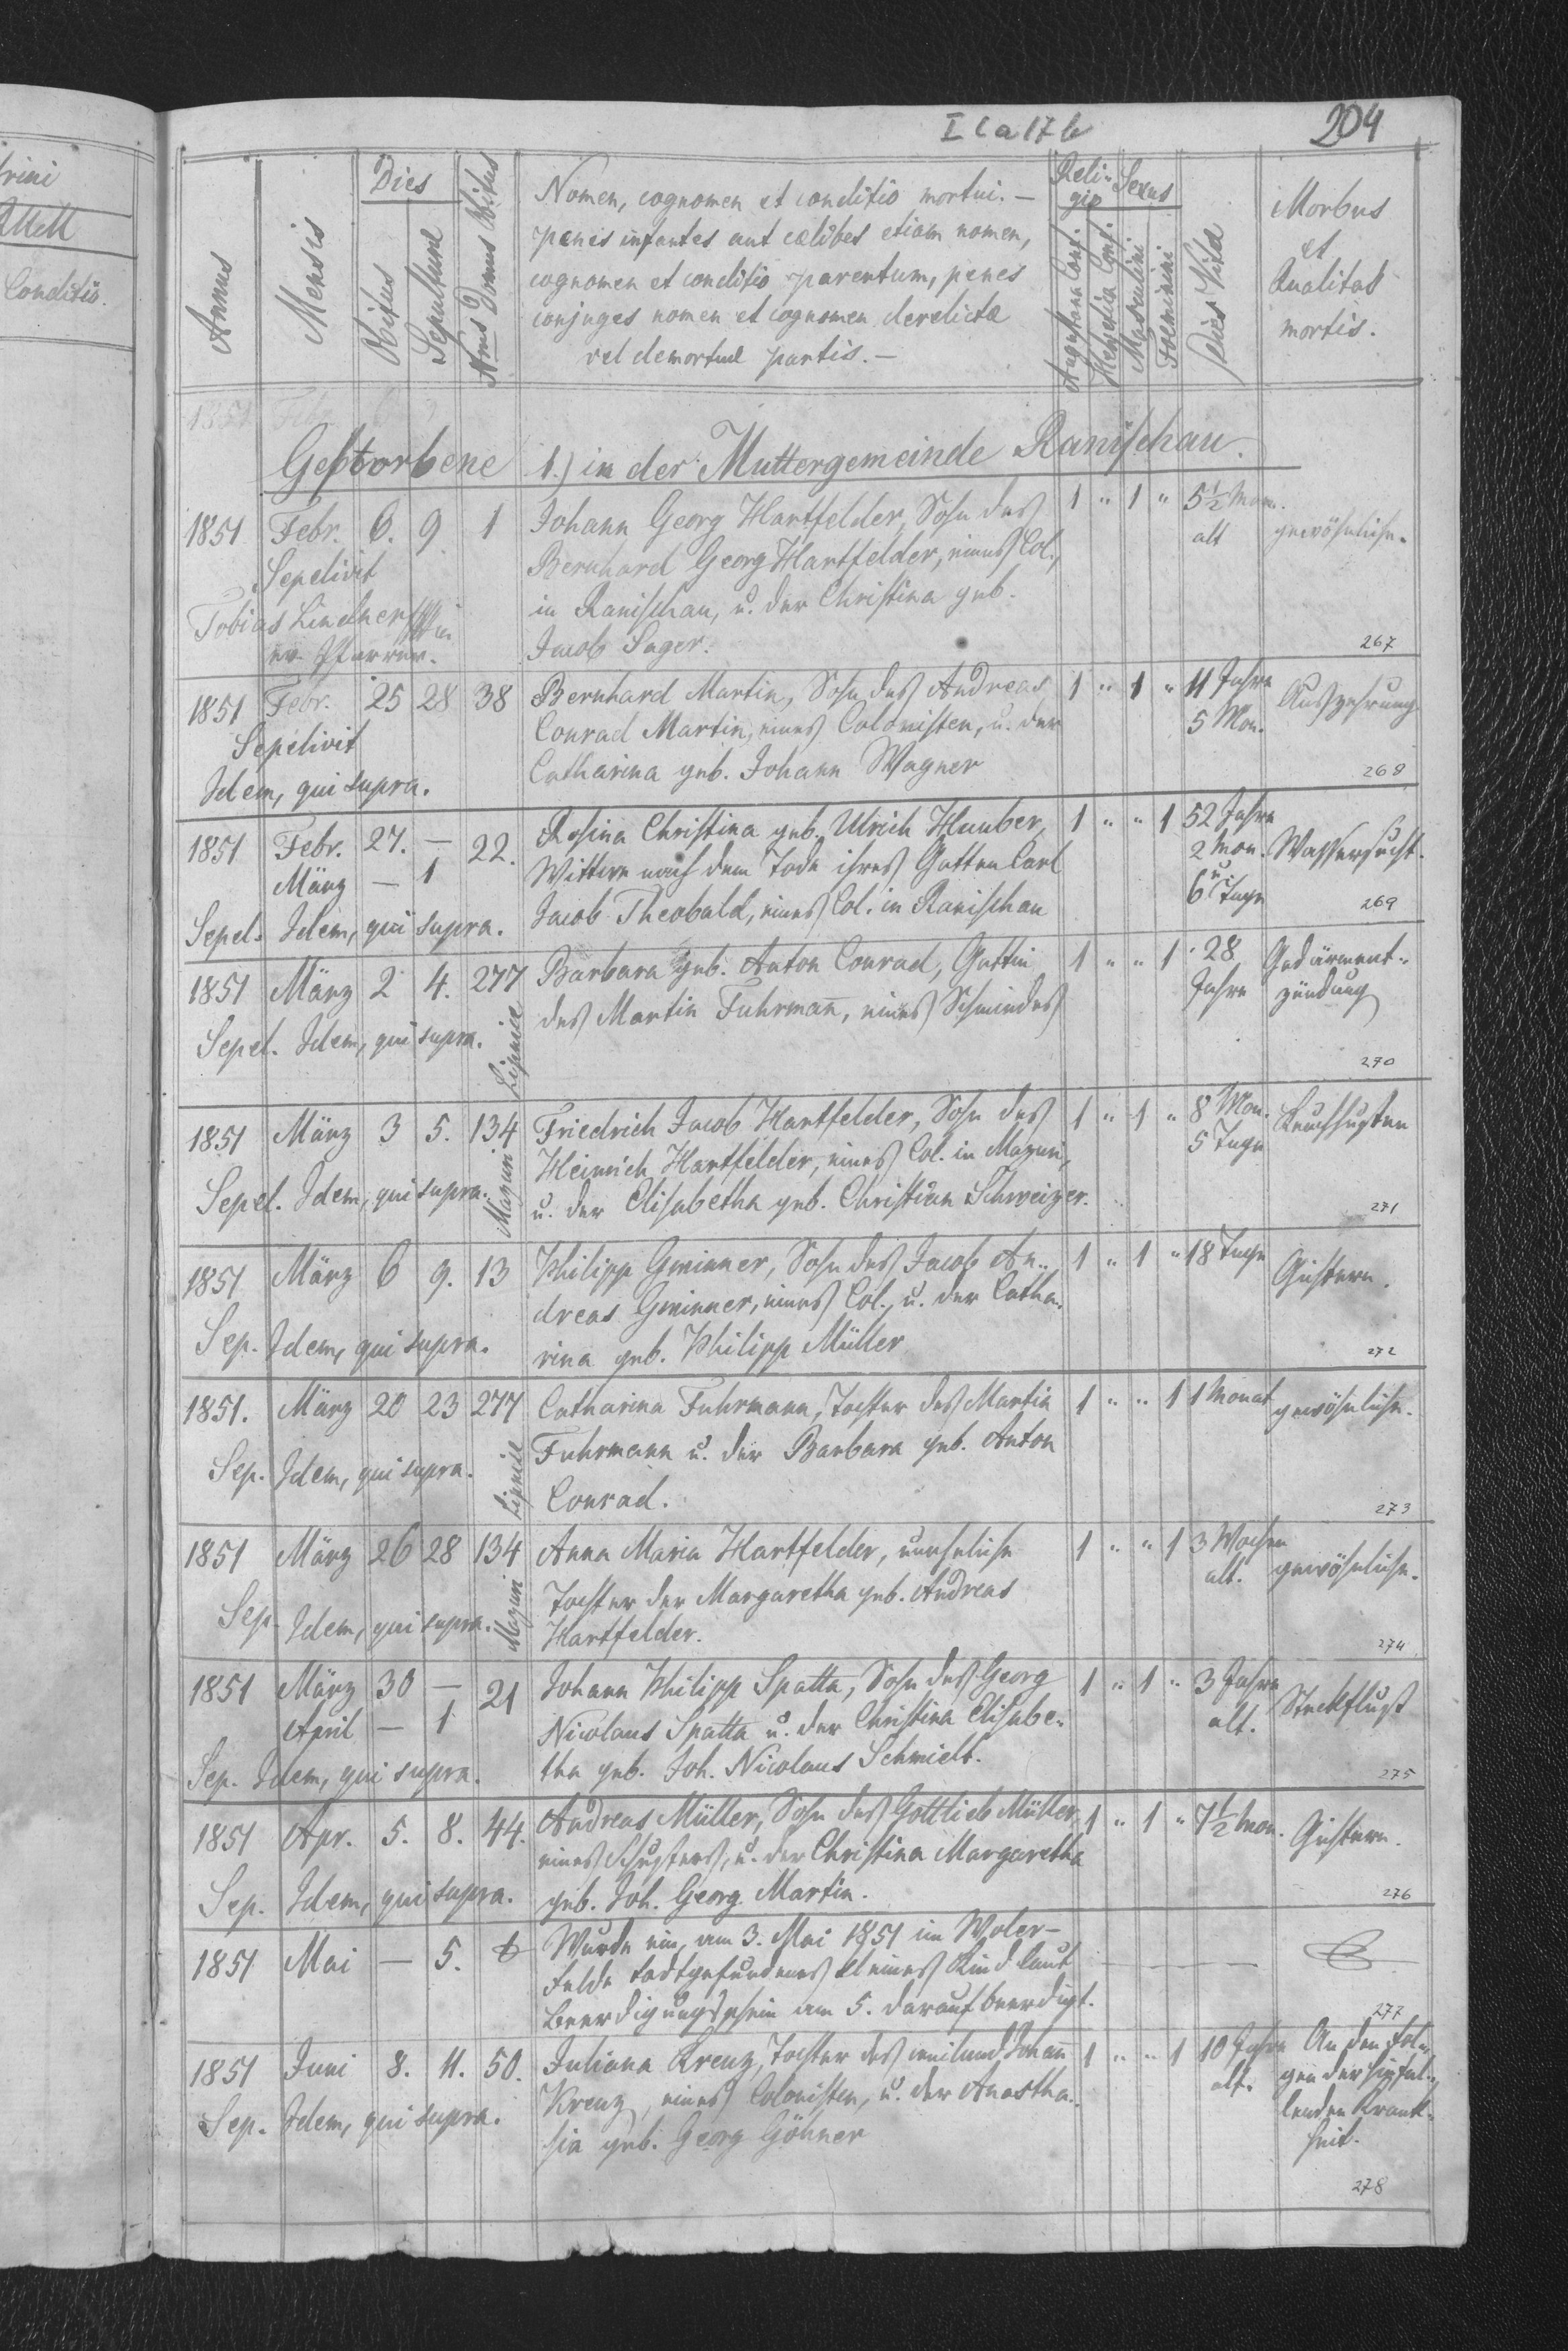 rini
Conditio.
I C a 17 b
204
Annus
Mensis
Dies
Obitus
Sepulturae
Nrus Domus Obitus
Nomen, cognomen et conditio mortui. —
penes infantes aut caelibes etiam nomen,
cognomen et conditio parentum, penes
conjuges nomen et cognomen derelictae
vel demortuae partis. —
Religio
Augustana Conf.
Helvetica Conf.
Sexus
Masculini
Foeminini
Dies Vitae
Morbus
et
Qualitas
mortis.
1851 Febr. 6
Gestorbene 1.) in der Muttergemeinde Ranischau.
1851 Febr. 6. 9. 1 Johann Georg Hartfelder, Sohn des 1 " 1 " 5½ Mon.
alt gewöhnliche.
Sepelivit Bernhard Georg Hartfelder, eines Col.,
Tobias Lindner in Ranischau, u. der Christina geb.
ev. Pfarrer. Jacob Sager.
267
1851 Febr. 25 28 38 Bernhard Martin, Sohn des Andreas 1 " 1 " 11 Jahre Auszehrung
Sepelivit Conrad Martin, eines Colonisten, u. der 5 Mon.
Idem, qui supra. Catharina geb. Johann Wagner
268
1851 Febr. 27. — 22. Rosina Christina geb. Ulrich Hauber, 1 " " 1 52 Jahre
März — 1 Wittwe nach dem Tode ihres Gatten Carl 2 Mon. Wassersucht.
Sepel. Idem, qui supra. Jacob Theobald, eines Col. in Ranischau u. 6 Tage
269
1851 März 2 4. 277 Barbara geb. Anton Conrad, Gattin 1 " " 1 28 Gedärment-
Lipnica des Martin Fuhrmañ, eines Schmiedes Jahre zündung
Sepel. Idem, qui supra.
270
1851 März 3 5. 134 Friedrich Jacob Hartfelder, Sohn des 1 " 1 " 8 Mon. Keuchhusten
Mazuri Heinrich Hartfelder, eines Col. in Mazuri, 5 Tage
Sepel. Idem, qui supra. u. der Elisabetha geb. Christian Schweizer.
271
1851 März 6 9. 13 Philipp Gminner, Sohn des Jacob An- 1 " 1 " 18 Tage Gichtern.
dreas Gminner, eines Col., u. der Catha-
Sep. Idem, qui supra. rina geb. Philipp Müller
272
1851. März 20 23 277 Catharina Fuhrmann, Tochter des Martin 1 " " 1 1 Monat gewöhnliche.
Lipnica Fuhrmann u. der Barbara geb. Anton
Sep. Idem, qui supra. Conrad.
273
1851 März 26 28 134 Anna Maria Hartfelder, uneheliche 1 " " 1 3 Wochen
Mazuri Tochter der Margaretha geb. Andreas alt. gewöhnliche.
Sep. Idem, qui supra. Hartfelder.
274
1851 März 30 — 21 Johann Philipp Spatta, Sohn des Georg 1 " 1 " 3 Jahre Steckfluß
April — 1 Nicolaus Spatta u. der Christina Elisabe- alt.
Sep. Idem, qui supra. tha geb. Joh. Nicolaus Schmidt.
275
1851 Apr. 5. 8. 44. Andreas Müller, Sohn des Gottlieb Müller, 1 " 1 " 7½ Mon. Gichtern.
eines Schusters, u. der Christina Margaretha
Sep. Idem, qui supra. geb. Joh. Georg Martin.
276
1851 Mai — 5. Wurde ein, am 3. Mai 1851 im Woler-
felde todtgefundenes kleines Kind laut
Beerdigungsschein am 5. darauf beerdigt.
277
1851 Juni 8. 11. 50. Juliana Kreuz, Tochter des weiland Johañ 1 " " 1 10 Jahre An den Fol-
Kreuz, eines Colonisten, u. der Anastha- alt. gen der hinfal-
Sep. Idem, qui supra. sia geb. Georg Göhner lenden Krank-
heit.
278